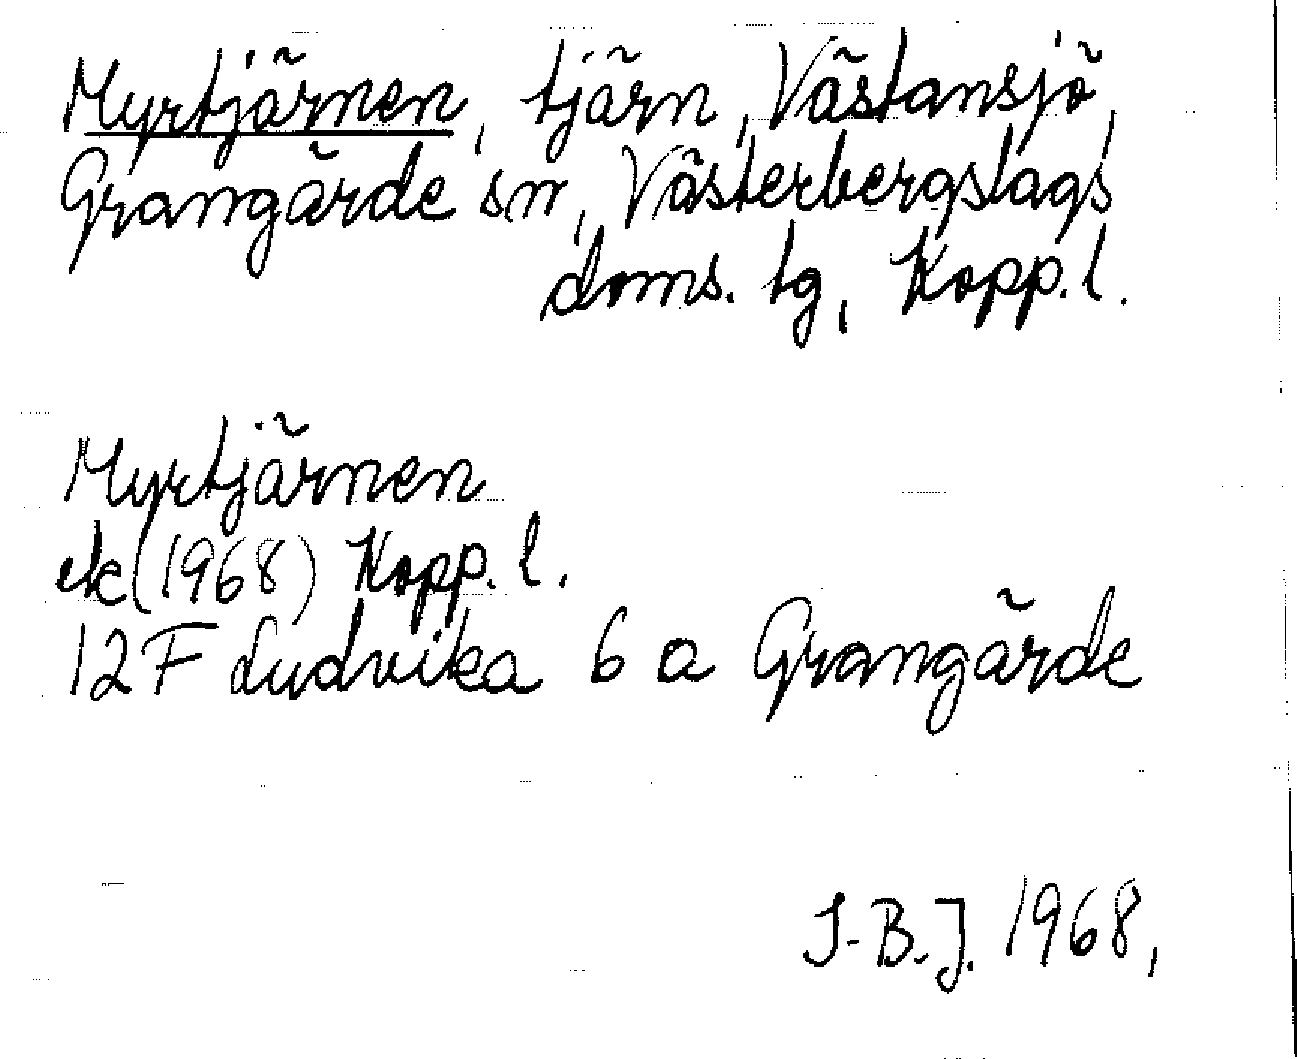 Myrtjärnen, tjärn, Västansjö,
Grangärde sn, Västerbergslags
doms. tg, Kopp. l.
Myrtjärnen
ek (1968) Kopp. l.
12 F Ludvika 6 a Grangärde
I-B.J. 1968,